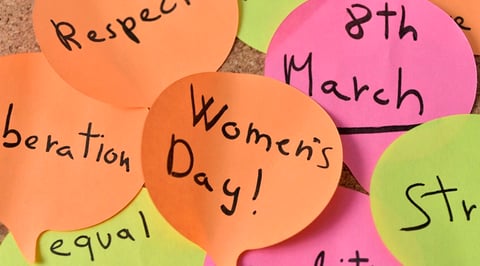 Respect
8th
March
beration
Women's
Day!
equal
Str